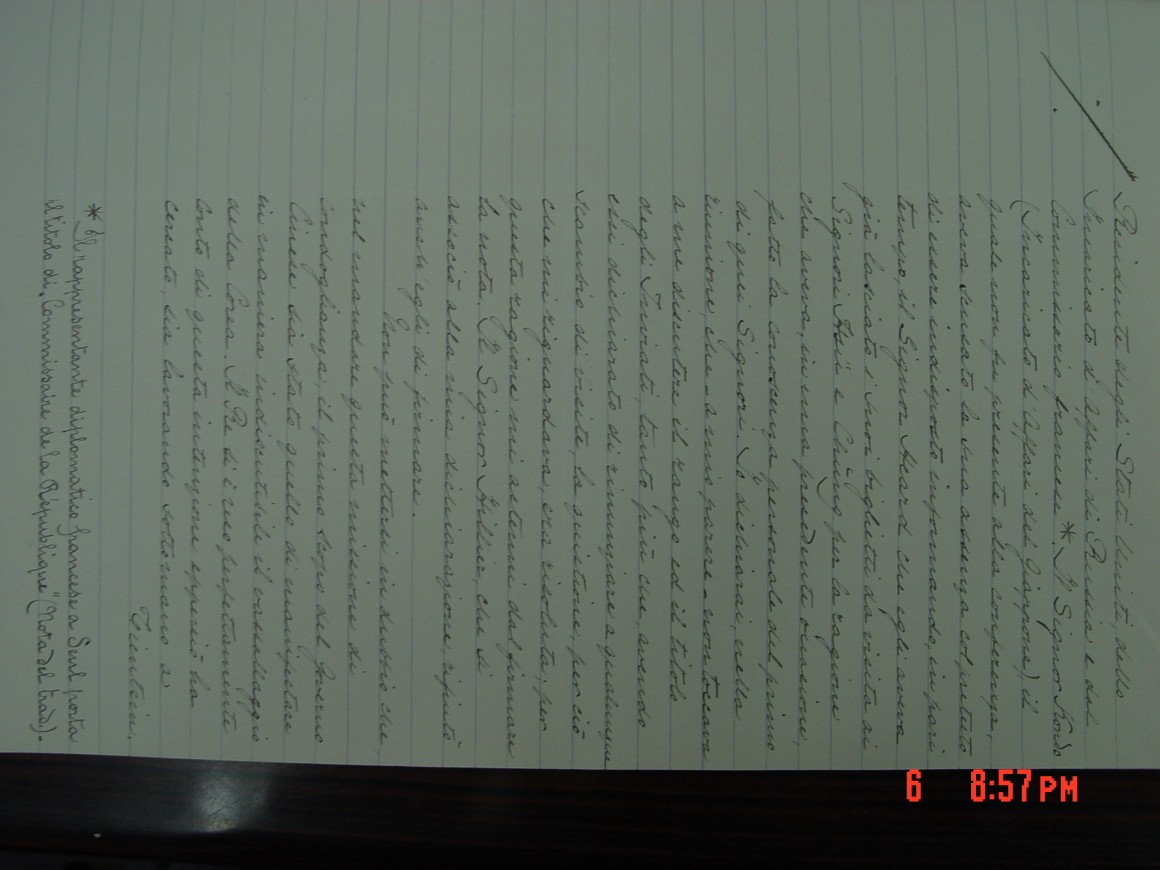 Residente degli Stati Uniti, dello
Incaricato d'Affari di Russia e dal
Commissario francese * Il Signor Kondo
(Incaricato d'Affari del Giappone) il
quale non fu presente alla conferenza,
aveva scusato la sua assenza col pretesto
di essere indisposto informando, in pari
tempo, il Signor Heard che egli aveva
già lasciato i suoi biglietti da visita ai
Signori Hsü e Chüng per la ragione
che aveva, in una precedente occasione,
fatto la conoscenza personale del primo
di quei Signori. Io dichiarai, nella
riunione, che - a mio parere - non toccava
a me discutere il rango ed il titolo
degli Inviati, tanto più che, avendo
essi dichiarato di rinunziare a qualunque
scambio di visite, la questione, per ciò
che mi riguardava, era risoluta; per
questa ragione mi astenni dal firmare
la nota. Il Signor Hillier, che si
associò alla mia dichiarazione, rifiutò
anch'egli di firmare.
Non può mettersi in dubbio che,
nel mandare questa missione di
condoglianza, il primo scopo del Governo
Cinese sia stato quello di manifestare
in maniera indiscutibile il vassallaggio
della Corea. Il Re si è reso perfettamente
conto di questa intenzione e perciò ha
cercato, sia lavorando sotto mano a
Tientsin,
* Il rappresentante diplomatico francese a Seul porta
il titolo di "Commissaire de la République" (Nota del trad).
6 8:57PM